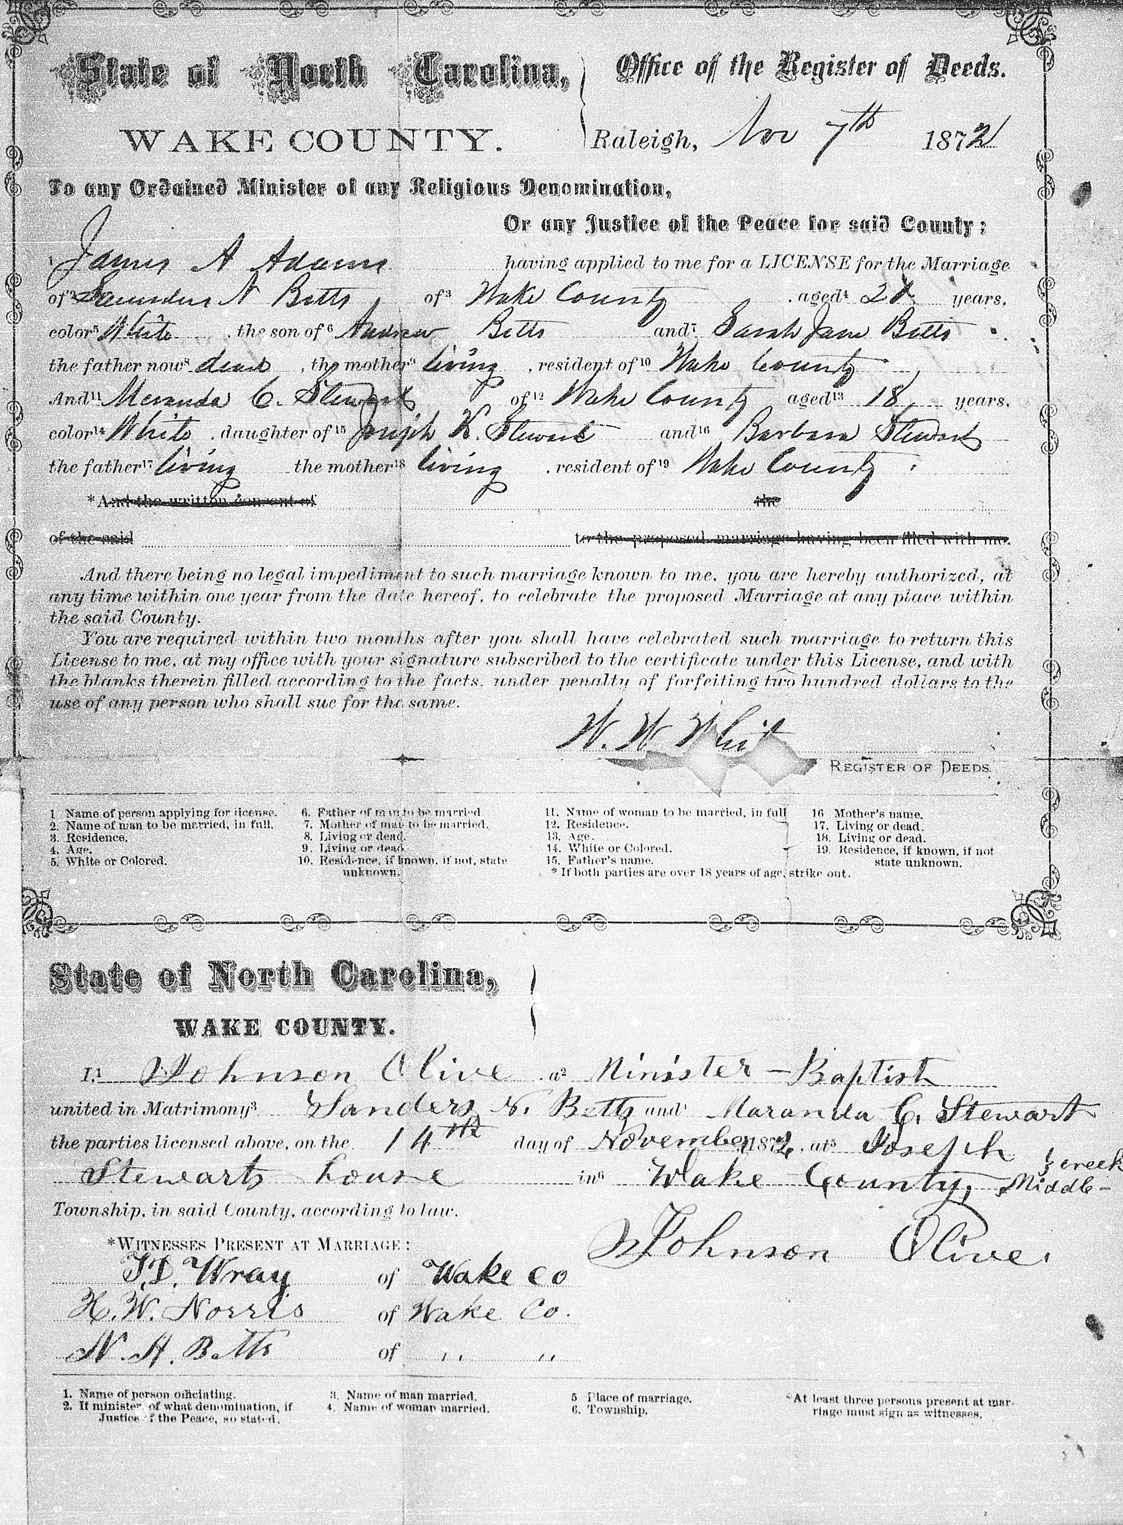 State of North Carolina, Office of the Register of Deeds.
WAKE COUNTY. Raleigh, Nov 7th 1872
To any Ordained Minister of any Religious Denomination,
Or any Justice of the Peace for said County;
1 James A Adams having applied to me for a LICENSE for the Marriage
of2 Saunders N Betts of3 Wake County aged4 years,
color5 White, the son of6 Andrew Betts and7 Sarah Jane Betts
the father now8 dead, the mother9 living, resident of10 Wake County,
And11 Meranda C. Stewart of12 Wake County aged13 18 years,
color14 White, daughter of15 Joseph K. Stewart and16 Barbara Stewart
the father17 living the mother18 living, resident of19 Wake County.
*And the written consent of the
of the said to the proposed marriage having been filed with me.
And there being no legal impediment to such marriage known to me, you are hereby authorized, at
any time within one year from the date hereof, to celebrate the proposed Marriage at any place within
the said County.
You are required within two months after you shall have celebrated such marriage to return this
License to me, at my office with your signature subscribed to the certificate under this License, and with
the blanks therein filled according to the facts, under penalty of forfeiting two hundred dollars to the
use of any person who shall sue for the same.
W. W. Whit
REGISTER OF DEEDS.
1 Name of person applying for license.
2. Name of man to be married, in full.
3. Residence.
4. Age.
5. White or Colored.
6. Father of man to be married
7. Mother of man to be married.
8. Living or dead.
9. Living or dead.
10. Residence, if known, if not, state
unknown.
11. Name of woman to be married, in full
12. Residence.
13. Age.
14. White or Colored.
15. Father's name.
16 Mother's name.
17. Living or dead.
18. Living or dead.
19. Residence, if known, if not
state unknown.
* If both parties are over 18 years of age, strike out.
State of North Carolina,
WAKE COUNTY.
I,1 Johnson Olive a2 Minister - Baptist
united in Matrimony3 Sanders N. Betts and4 Maranda C. Stewart
the parties licensed above, on the 14th day of November 1872, at5 Joseph
Stewarts house in6 Wake County, Middle-Creek
Township, in said County, according to law.
Johnson Olive.
*WITNESSES PRESENT AT MARRIAGE:
Wray of Wake Co
H. W. Norris of Wake Co.
N. H. Betts of " "
1. Name of person officiating.
2. If minister, of what denomination, if
Justice of the Peace, so stated.
3. Name of man married.
4. Name of woman married.
5 Place of marriage.
6. Township.
*At least three persons present at mar-
riage must sign as witnesses.